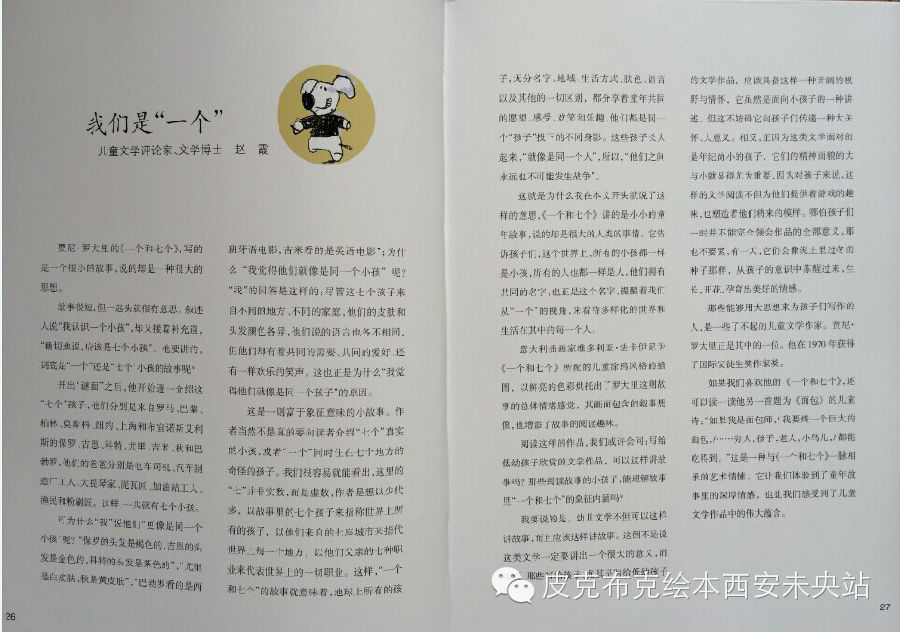 我们是“一个”
儿童文学评论家、文学博士 赵霞
贾尼·罗大里的《一个和七个》，写的
是一个很小的故事，说的却是一种很大的
思想。
故事很短，但一起头就很有意思。叙述
人说“我认识一个小孩”，却又接着补充道，
“确切地说，应该是七个小孩”。他要讲的，
到底是“一个”还是“七个”小孩的故事呢？
开出“谜面”之后，他开始逐一介绍这
“七个”孩子，他们分别是来自罗马、巴黎、
柏林、莫斯科、纽约、上海和布宜诺斯艾利
斯的保罗、吉恩、科特、尤里、吉米、秋和巴
勃罗，他们的爸爸分别是电车司机、汽车制
造厂工人、大提琴家、泥瓦匠、加油站工人、
渔民和粉刷匠。这样一共就有七个小孩。
可为什么“我”说他们“更像是同一个
小孩”呢？“保罗的头发是褐色的，吉恩的头
发是金色的，科特的头发是栗色的”，“尤里
是白皮肤，秋是黄皮肤”，“巴勃罗看的是西
班牙语电影，吉米看的是英语电影”；为什
么“我觉得他们就像是同一个小孩”呢？
“我”的回答是这样的：尽管这七个孩子来
自不同的地方、不同的家庭，他们的皮肤和
头发颜色各异，他们说的语言也各不相同，
但他们却有着共同的需要、共同的爱好，还
有一样欢乐的笑声。这也正是为什么“我觉
得他们就像是同一个孩子”的原因。
这是一则富于象征意味的小故事。作
者当然不是真的要向读者介绍“七个”真实
的小孩，或者“一个”同时生在七个地方的
奇怪的孩子。我们很容易就能看出，这里的
“七”并非实数，而是虚数，作者是想以少代
多，以故事里的七个孩子来指称世界上所
有的孩子，以他们来自的七座城市来指代
世界上每一个地方，以他们父亲的七种职
业来代表世界上的一切职业。这样，“一个
和七个”的故事就意味着，地球上所有的孩
26
子，无分名字、地域、生活方式、肤色、语言
以及其他的一切区别，都分享着童年共同
的愿望、感受、欢笑和乐趣，他们都是同一
个“孩子”投下的不同身影。这些孩子长大
起来，“就像是同一个人”，所以，“他们之间
永远也不可能发生战争”。
这就是为什么我在本文开头就说了这
样的意思，《一个和七个》讲的是小小的童
年故事，说的却是很大的人类的事情。它告
诉孩子们，这个世界上，所有的小孩都一样
是小孩，所有的人也都一样是人，他们拥有
共同的名字，也正是这个名字，提醒着我们
从“一个”的视角，来看待多样化的世界和
生活在其中的每一个人。
意大利插画家维多利亚·法卡
《一个和七个》所配的儿童涂鸦风格的插
图，以鲜亮的色彩烘托出了罗大里这则故
事的总体情绪感觉，其画面包含的叙事想
像，也增添了故事的阅读趣味。
阅读这样的作品，我们或许会问：写给
低幼孩子欣赏的文学作品，可以这样讲故
事吗？那些阅读故事的小孩子，能理解故事
里“一个和七个”的象征内涵吗？
我要说的是，幼儿文学不但可以这样
讲故事，而且应该这样讲故事。这倒不是说
这类文学一定要讲出一个很大的意义，而
那些写给孩子、尤其是写给低幼孩子
的文学作品，应该具备这样一种开阔的视
野与情怀，它虽然是面向小孩子的一种讲
述，但这不妨碍它向孩子们传递一种大关
怀、大意义。相反，正因为这类文学面对的
是年纪尚小的孩子，它们的精神面貌的大
与小就显得尤为重要，因为对孩子来说，这
样的文学阅读不但为他们提供着游戏的趣
味，也塑造着他们将来的模样。哪怕孩子们
一时并不能完全领会作品的全部意义，那
也不要紧，有一天，它们会像泥土里过冬的
种子那样，从孩子的意识中苏醒过来，生
长、开花，孕育出美好的情感。
那些能够用大思想来为孩子们写作的
人，是一些了不起的儿童文学作家。贾尼·
罗大里正是其中的一位。他在1970年获得
了国际安徒生奖作家奖。
如果我们喜欢他的《一个和七个》，还
可以读一读他另一首题为《面包》的儿童
诗：“如果我是面包师，/我要烤一个巨大的
面包，/……穷人，孩子，老人，小鸟儿，/都能
吃得到。”这是一种与《一个和七个》一脉相
承的艺术情愫，它让我们体验到了童年故
事里的深厚情感，也让我们感受到了儿童
文学作品中的伟大蕴含。
皮克布克绘本西安未央站
27